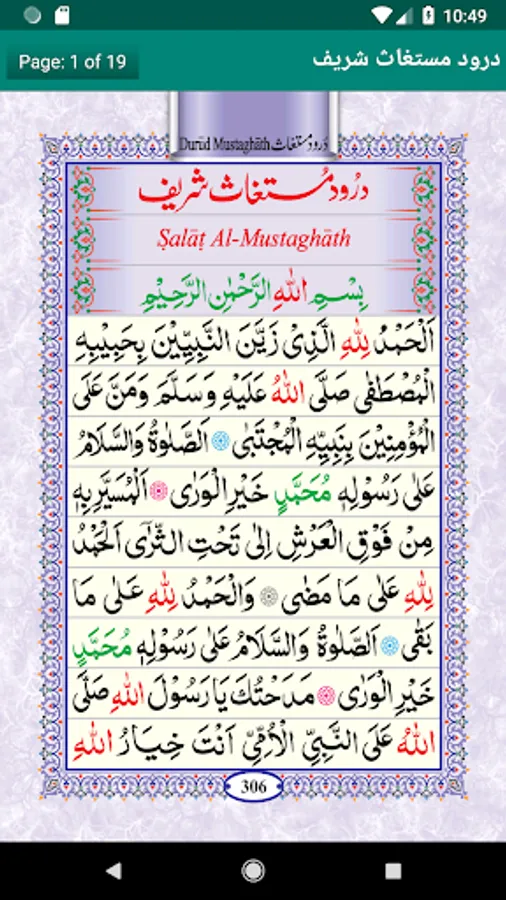 10:49
Page: 1 of 19 درود مستغاث شریف
Durūd Mustaghāth دُرود مُستغاث
درُود مُستغاث شریف
Ṣalāṭ Al-Mustaghāth
بِسْمِ اللهِ الرَّحْمٰنِ الرَّحِيْمِ
اَلْحَمْدُ لِلّٰهِ الَّذِىْ زَيَّنَ النَّبِيِّيْنَ بِحَبِيْبِهِ
الْمُصْطَفٰى صَلَّى اللهُ عَلَيْهِ وَسَلَّمَ وَمَنَّ عَلَى
الْمُؤْمِنِيْنَ بِنَبِيِّهِ الْمُجْتَبٰى اَلصَّلٰوةُ وَالسَّلَامُ
عَلٰى رَسُوْلِهٖ مُحَمَّدٍ خَيْرِ الْوَرٰى اَلْمُسَيَّرِ بِهٖ
مِنْ فَوْقِ الْعَرْشِ اِلٰى تَحْتِ الثَّرٰى اَلْحَمْدُ
لِلّٰهِ عَلٰى مَا مَضٰى وَالْحَمْدُ لِلّٰهِ عَلٰى مَا
بَقٰى اَلصَّلٰوةُ وَالسَّلَامُ عَلٰى رَسُوْلِهٖ مُحَمَّدٍ
خَيْرِ الْوَرٰى مَدَحْتُكَ يَا رَسُوْلَ اللهِ صَلَّى
اللهُ عَلَى النَّبِيِّ الْاُمِّيِّ اَنْتَ خِيَارُ اللهِ
306